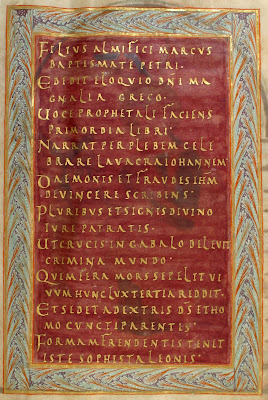 FILIUS ALMIFICI MARCUS
BAPTISMATE PETRI·
EDIDIT ELOQUIO DNI MA
GNALIA GRECO·
VOCE PROPHETALI FACIENS
PRIMORDIA LIBRI·
NARRAT PER PLEBEM CELE
BRARE LAVACRA IOHANNEM·
DAEMONIS ET FRAUDES IHM
DEVINCERE SCRIBENS·
PLURIBUS ET SIGNIS DIVINO
IURE PATRATIS·
UT CRUCIS IN GABALO DELEVIT
CRIMINA MUNDO·
QUEM FERA MORS SEPELIT VI
VUM HUNC LUX TERTIA REDDIT·
ET SEDET A DEXTRIS DS ET HO
MO CUNCTIPARENTIS·
FORMAM FRENDENTIS TENET
ISTE SOPHISTA LEONIS·